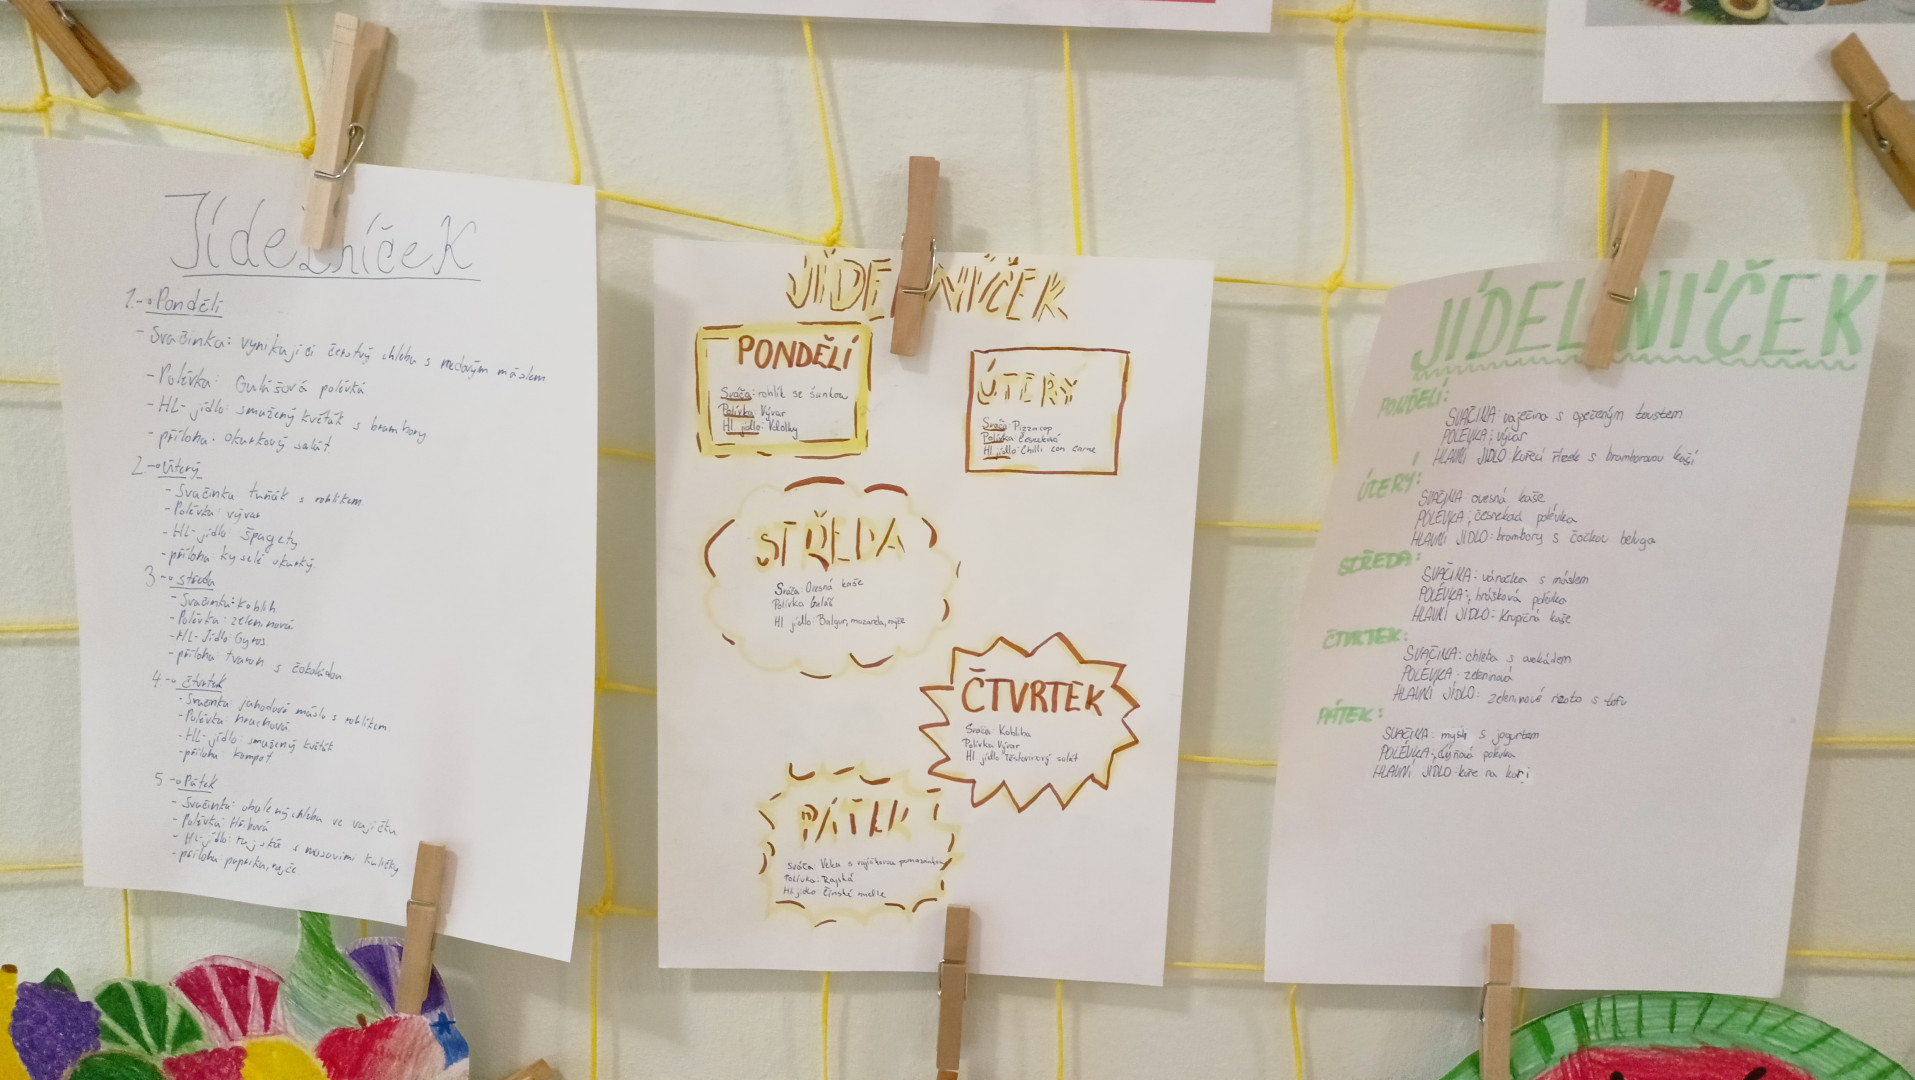 Jídelníček
1. Pondělí
- Svačinka: vynikající čerstvý chleba s medovým máslem
- Polévka: Gulášová polévka
- HL- jídlo: smažený květák s brambory
- příloha: okurkový salát
2. Úterý
- Svačinka: tuňák s rohlíkem
- Polévka: vývar
- HL- jídlo: špagety
- příloha: kyselé okurky
3 středa
- Svačinka: koblih
- Polévka: zeleninová
- HL- Jídlo Gyros
- příloha tvaroh s čokoládou
4 čtvrtek
- Svačinka: jahodové máslo s rohlíkem
- Polévka hrachová
- HL- jídlo: smažený květák
- příloha kompot
5. Pátek
- Svačinka: obalený chleba ve vajíčku
- Polévka: Hribová
- HL- jídlo: rajská s masovími kuličky
- příloha paprika, rajče
JÍDELNÍČEK
PONDĚLÍ
Svača: rohlík se šunkou
Polívka Vývar
Hl. jídlo: Vdolky
ÚTERÝ
Svača: Pizza cop
Polívka: česneková
Hl. jídlo: Chilli con carne
STŘEDA
Svača: Ovesná kaše
Polívka: Guláš
Hl. jídlo: Bulgur, mozarela, rajče
ČTVRTEK
Svača Kobliha
Polívka: Vývar
Hl. jídlo: Těstovinový salát
PÁTEK
Svača: Veka s vajíčkovou pomazánkou
Polívka: Rajská
Hl. jídlo: Čínské nudle
JÍDELNÍČEK
PONDĚLÍ:
SVAČINA: vaječina s opečeným toustem
POLÉVKA: vývar
HLAVNÍ JÍDLO kuřecí řízek s bramborovou kaší
ÚTERÝ:
SVAČINA ovesná kaše
POLÉVKA: česneková polévka
HLAVNÍ JÍDLO: brambory s čočkou beluga
STŘEDA:
SVAČINA: vánočka s máslem
POLÉVKA: hrášková polévka
HLAVNÍ JÍDLO: Krupičná kaše
ČTVRTEK:
SVAČINA: chleba s avokádem
POLÉVKA: zeleninová
HLAVNÍ JÍDLO: zeleninové rizoto s tofu
PÁTEK:
SVAČINA: mysli s jogurtem
POLÉVKA: dýňová polévka
HLAVNÍ JÍDLO: kuře na kari